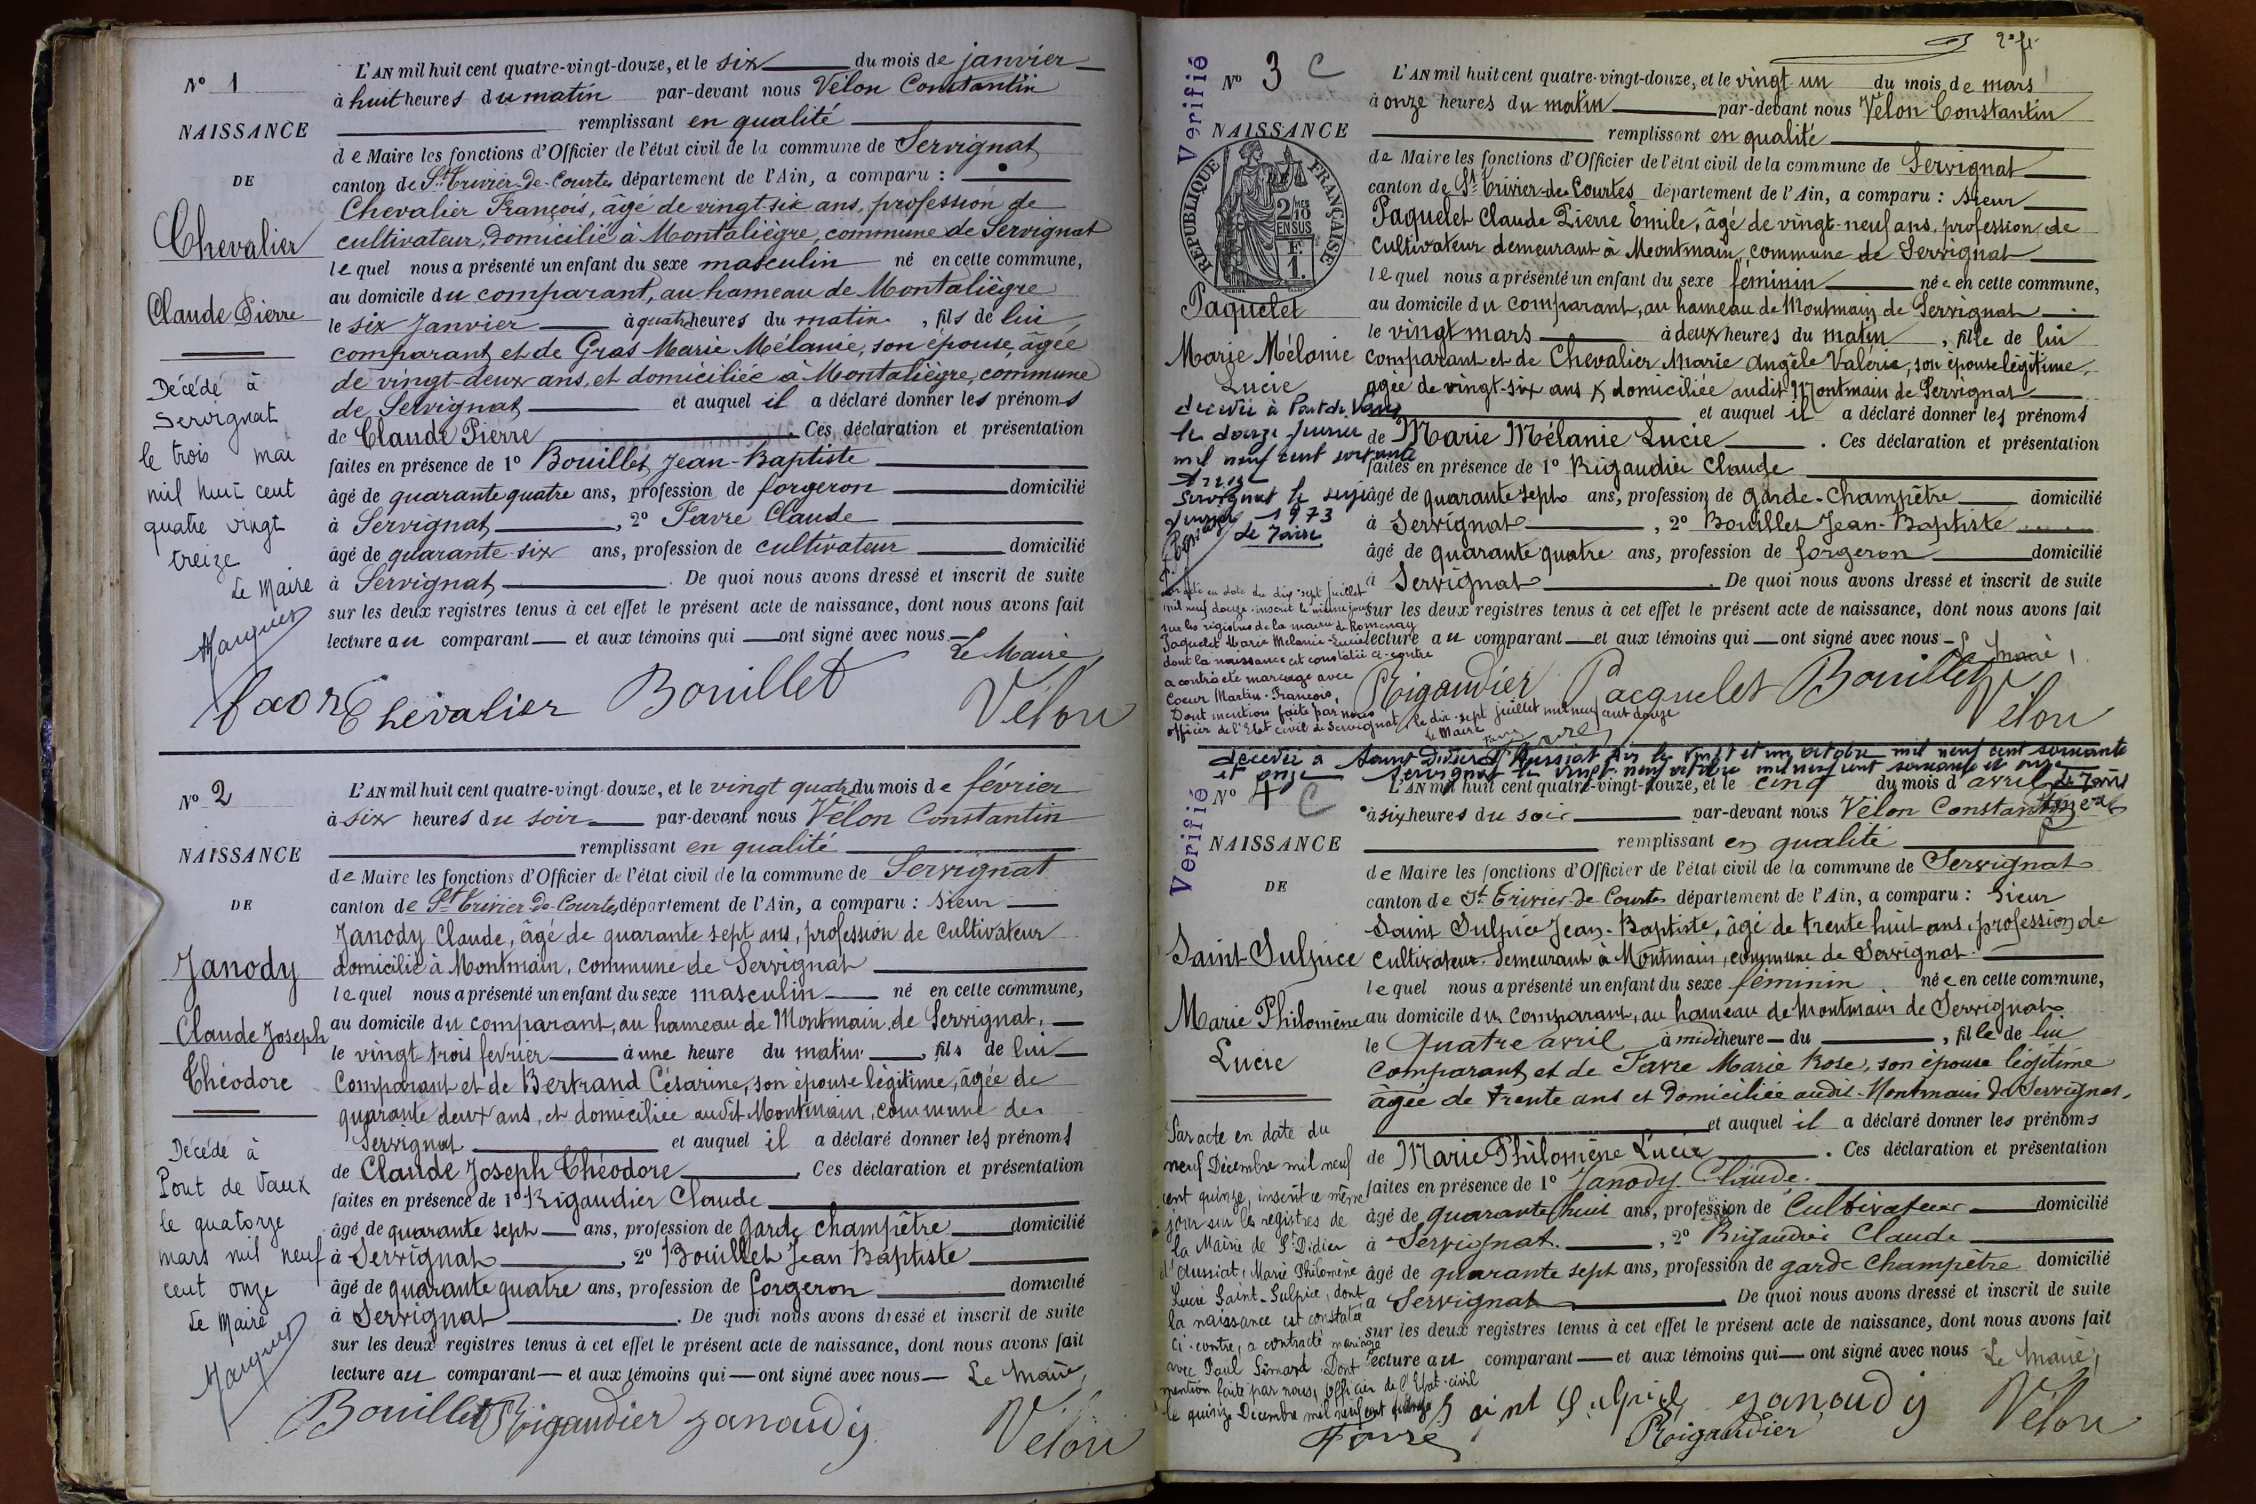 N° 1
NAISSANCE
DE
Chevalier
Claude Pierre
Décédé à
Servignat
le trois mai
mil huit cent
quatre vingt
treize
Le Maire
L'AN mil huit cent quatre-vingt-douze, et le six du mois de janvier
à huit heures du matin par-devant nous Vélon Constantin
remplissant en qualité
de Maire les fonctions d'Officier de l'état civil de la commune de Servignat
canton de St Trivier-de-Courtes département de l'Ain, a comparu :
Chevalier François, âgé de vingt-six ans, profession de
cultivateur, domicilié à Montaliègre, commune de Servignat
lequel nous a présenté un enfant du sexe masculin né en cette commune,
au domicile du comparant, au hameau de Montaliègre
le six Janvier à quatre heures du matin, fils de lui
comparant et de Gras Marie Mélanie, son épouse, âgée
de vingt-deux ans, et domiciliée à Montaliègre, commune
de Servignat et auquel il a déclaré donner les prénoms
de Claude Pierre. Ces déclaration et présentation
faites en présence de 1° Bouillet Jean-Baptiste
âgé de quarante quatre ans, profession de forgeron domicilié
à Servignat, 2° Favre Claude
âgé de quarante-six ans, profession de cultivateur domicilié
à Servignat. De quoi nous avons dressé et inscrit de suite
sur les deux registres tenus à cet effet le présent acte de naissance, dont nous avons fait
lecture au comparant et aux témoins qui ont signé avec nous
Le Maire
Chevalier Bouillet Vélon
N° 2
NAISSANCE
DE
Janody
Claude Joseph
Théodore
Décédé à
Pont de Vaux
le quatorze
mars mil neuf
cent onze
Le Maire
L'AN mil huit cent quatre-vingt-douze, et le vingt quatre du mois de février
à six heures du soir par-devant nous Vélon Constantin
remplissant en qualité
de Maire les fonctions d'Officier de l'état civil de la commune de Servignat
canton de St Trivier-de-Courtes département de l'Ain, a comparu : sieur
Janody Claude, âgé de quarante sept ans, profession de cultivateur
domicilié à Montmain, commune de Servignat
lequel nous a présenté un enfant du sexe masculin né en cette commune,
au domicile du comparant, au hameau de Montmain, de Servignat,
le vingt trois fevrier à une heure du matin, fils de lui
comparant et de Bertrand Césarine, son épouse légitime, âgée de
quarante deux ans, et domiciliée audit Montmain, commune de
Servignat et auquel il a déclaré donner les prénoms
de Claude Joseph Théodore. Ces déclaration et présentation
faites en présence de 1° Rigaudier Claude
âgé de quarante sept ans, profession de garde champêtre domicilié
à Servignat, 2° Bouillet Jean Baptiste
âgé de quarante quatre ans, profession de forgeron domicilié
à Servignat. De quoi nous avons dressé et inscrit de suite
sur les deux registres tenus à cet effet le présent acte de naissance, dont nous avons fait
lecture au comparant et aux témoins qui ont signé avec nous Le Maire,
Bouillet Rigaudier Janoudy Vélon
Verifié
N° 3 C
NAISSANCE
RÉPUBLIQUE FRANÇAISE
2/10 EN SUS
F
1.
Paquelet
Marie Mélanie
Lucie
décédée à Pont de Vaux
le douze
mil neuf cent soixante
treize
Servignat le
1973
le Maire
en date du dix-sept juillet
mil neuf douze inscrit le même jour
sur les registres de la mairie de Romenay
Paquelet Marie Mélanie-Lucie
dont la naissance est constatée ci-contre
a contracté mariage avec
Coeur Martin-François,
Dont mention faite par nous
officier de l'Etat civil de Servignat, le dix-sept juillet mil neuf cent douze
Le Maire
L'AN mil huit cent quatre-vingt-douze, et le vingt un du mois de mars
à onze heures du matin par-devant nous Vélon Constantin
remplissant en qualité
de Maire les fonctions d'Officier de l'état civil de la commune de Servignat
canton de St Trivier-de-Courtes département de l'Ain, a comparu : sieur
Paquelet Claude Pierre Emile, âgé de vingt-neuf ans, profession de
cultivateur demeurant à Montmain, commune de Servignat
lequel nous a présenté un enfant du sexe féminin née en cette commune,
au domicile du comparant, au hameau de Montmain de Servignat
le vingt mars à deux heures du matin, fille de lui
comparant et de Chevalier Marie Angèle Valérie, son épouse légitime,
âgée de vingt-six ans & domiciliée audit Montmain de Servignat
et auquel il a déclaré donner les prénoms
de Marie Mélanie Lucie. Ces déclaration et présentation
faites en présence de 1° Rigaudier Claude
âgé de quarante sept ans, profession de garde-champêtre domicilié
à Servignat, 2° Bouillet Jean-Baptiste
âgé de quarante quatre ans, profession de forgeron domicilié
à Servignat. De quoi nous avons dressé et inscrit de suite
sur les deux registres tenus à cet effet le présent acte de naissance, dont nous avons fait
lecture au comparant et aux témoins qui ont signé avec nous Le Maire,
Rigaudier Pacquelet Bouillet Vélon
décédée à Saint Didier d'Aussiat Ain le vingt et un octobre mil neuf cent soixante
et onze Servignat le vingt-neuf octobre mil neuf cent soixante et onze
Le Maire
Verifié
N° 4 C
NAISSANCE
DE
Saint Sulpice
Marie Philomène
Lucie
Par acte en date du
neuf Décembre mil neuf
cent quinze, inscrit ce même
jour sur les registres de
la Mairie de St Didier
d'Aussiat, Marie Philomène
Lucie Saint-Sulpice, dont
la naissance est constatée
ci-contre, a contracté mariage
avec Paul Simard Dont
mention faite par nous, Officier de l'Etat-civil
le quinze Décembre mil neuf cent quinze
Favre
L'AN mil huit cent quatre-vingt-douze, et le cinq du mois d'avril
à six heures du soir par-devant nous Vélon Constantin
remplissant en qualité
de Maire les fonctions d'Officier de l'état civil de la commune de Servignat
canton de St Trivier-de-Courtes département de l'Ain, a comparu : Sieur
Saint Sulpice Jean-Baptiste, âgé de trente huit ans, profession de
cultivateur demeurant à Montmain, commune de Servignat.
lequel nous a présenté un enfant du sexe féminin née en cette commune,
au domicile du comparant, au hameau de Montmain de Servignat
le quatre avril à midi heure du, fille de lui
comparant et de Favre Marie Rose, son épouse légitime
âgée de trente ans et domiciliée audit Montmain de Servignat,
et auquel il a déclaré donner les prénoms
de Marie Philomène Lucie. Ces déclaration et présentation
faites en présence de 1° Janody Claude.
âgé de quarante huit ans, profession de Cultivateur domicilié
à Servignat, 2° Rigaudier Claude
âgé de quarante sept ans, profession de garde champêtre domicilié
à Servignat. De quoi nous avons dressé et inscrit de suite
sur les deux registres tenus à cet effet le présent acte de naissance, dont nous avons fait
lecture au comparant et aux témoins qui ont signé avec nous Le Maire,
Saint Sulpice Janoudy Vélon
Rigaudier